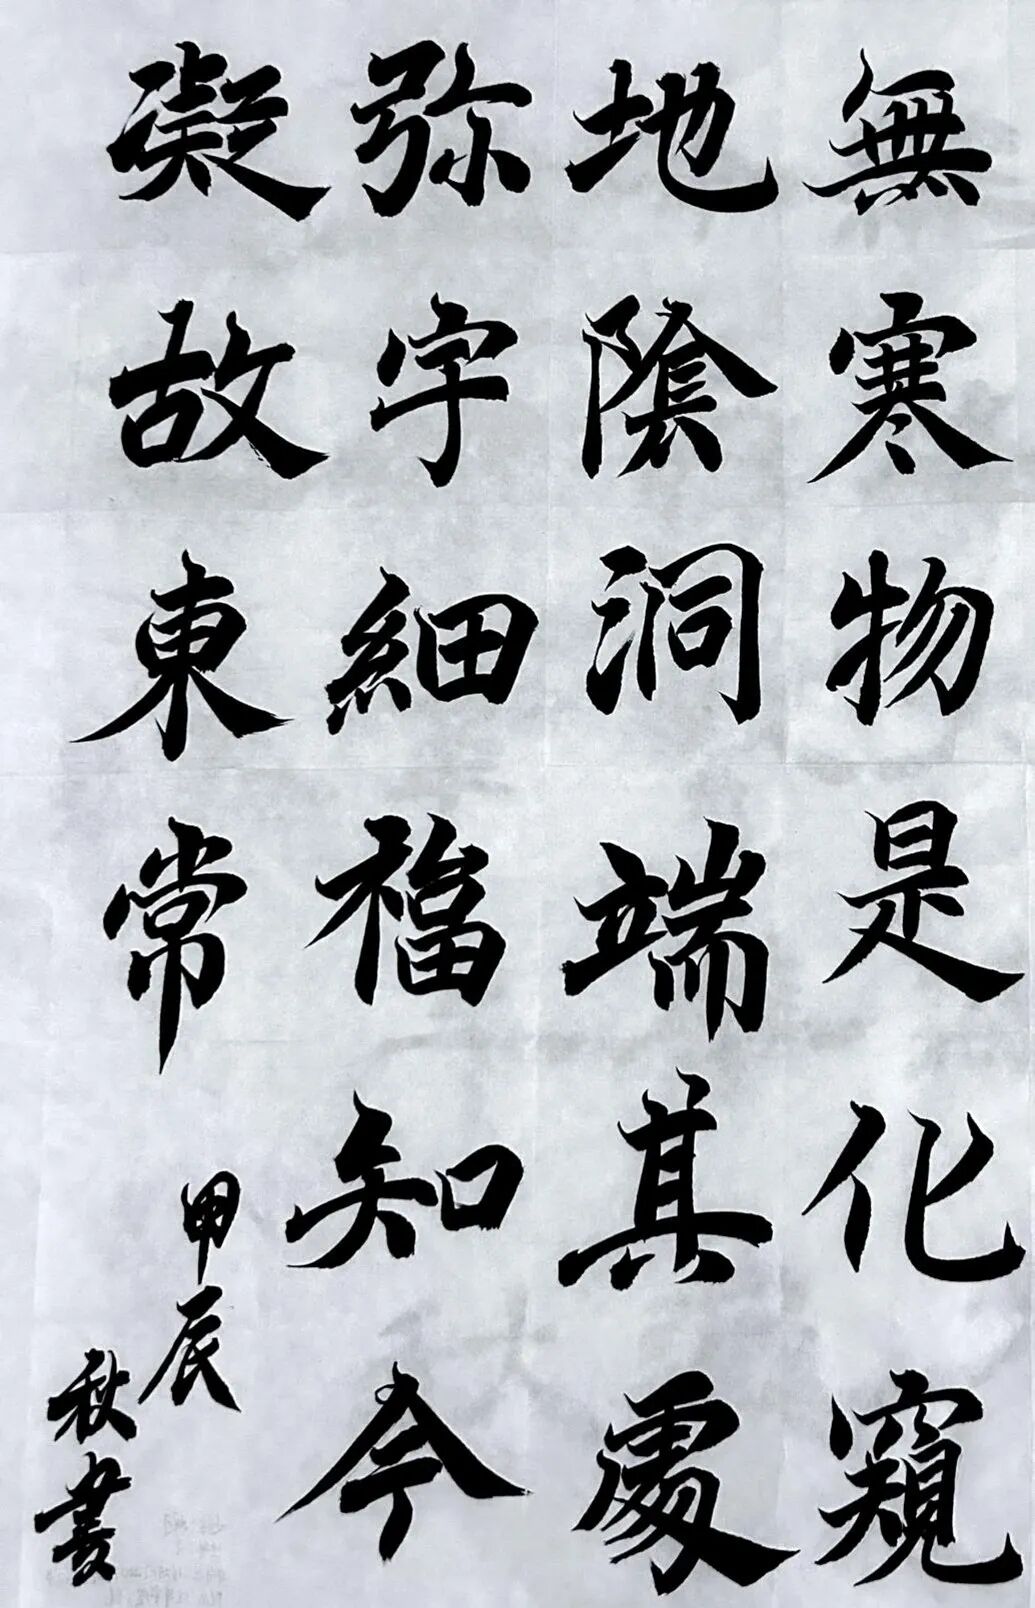 無寒物是化窺
地陰洞端其處
弥字細福知今
凝故東常
甲辰
秋書